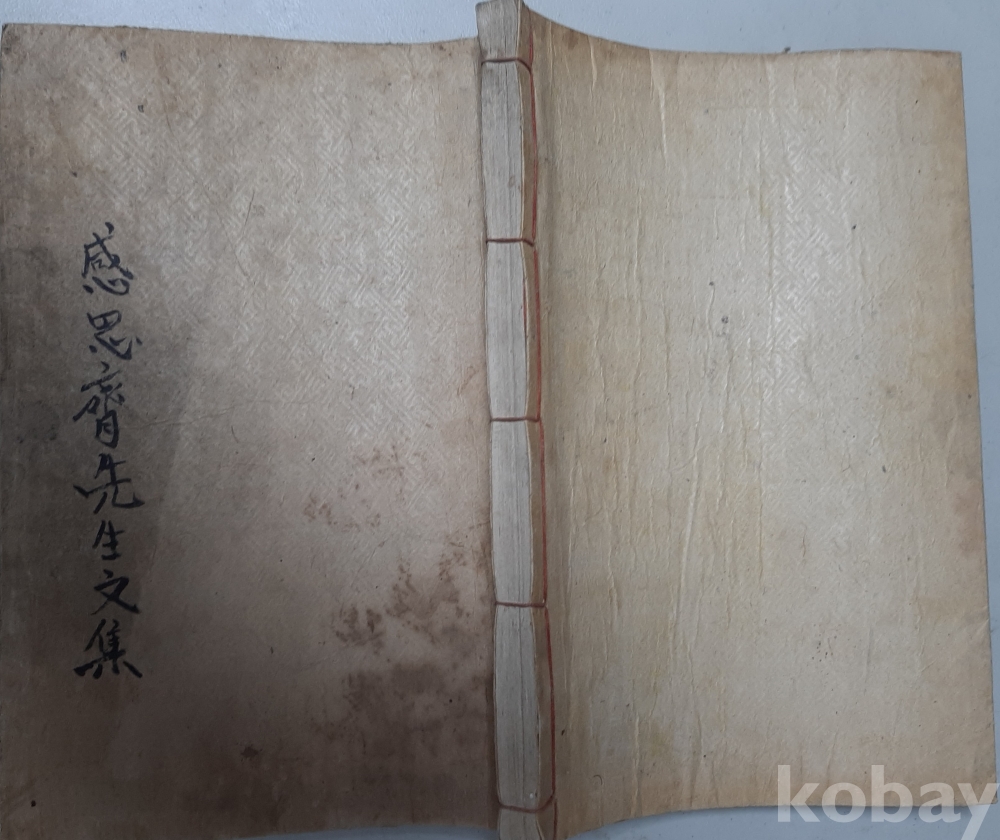 感思齋先生文集
kobay